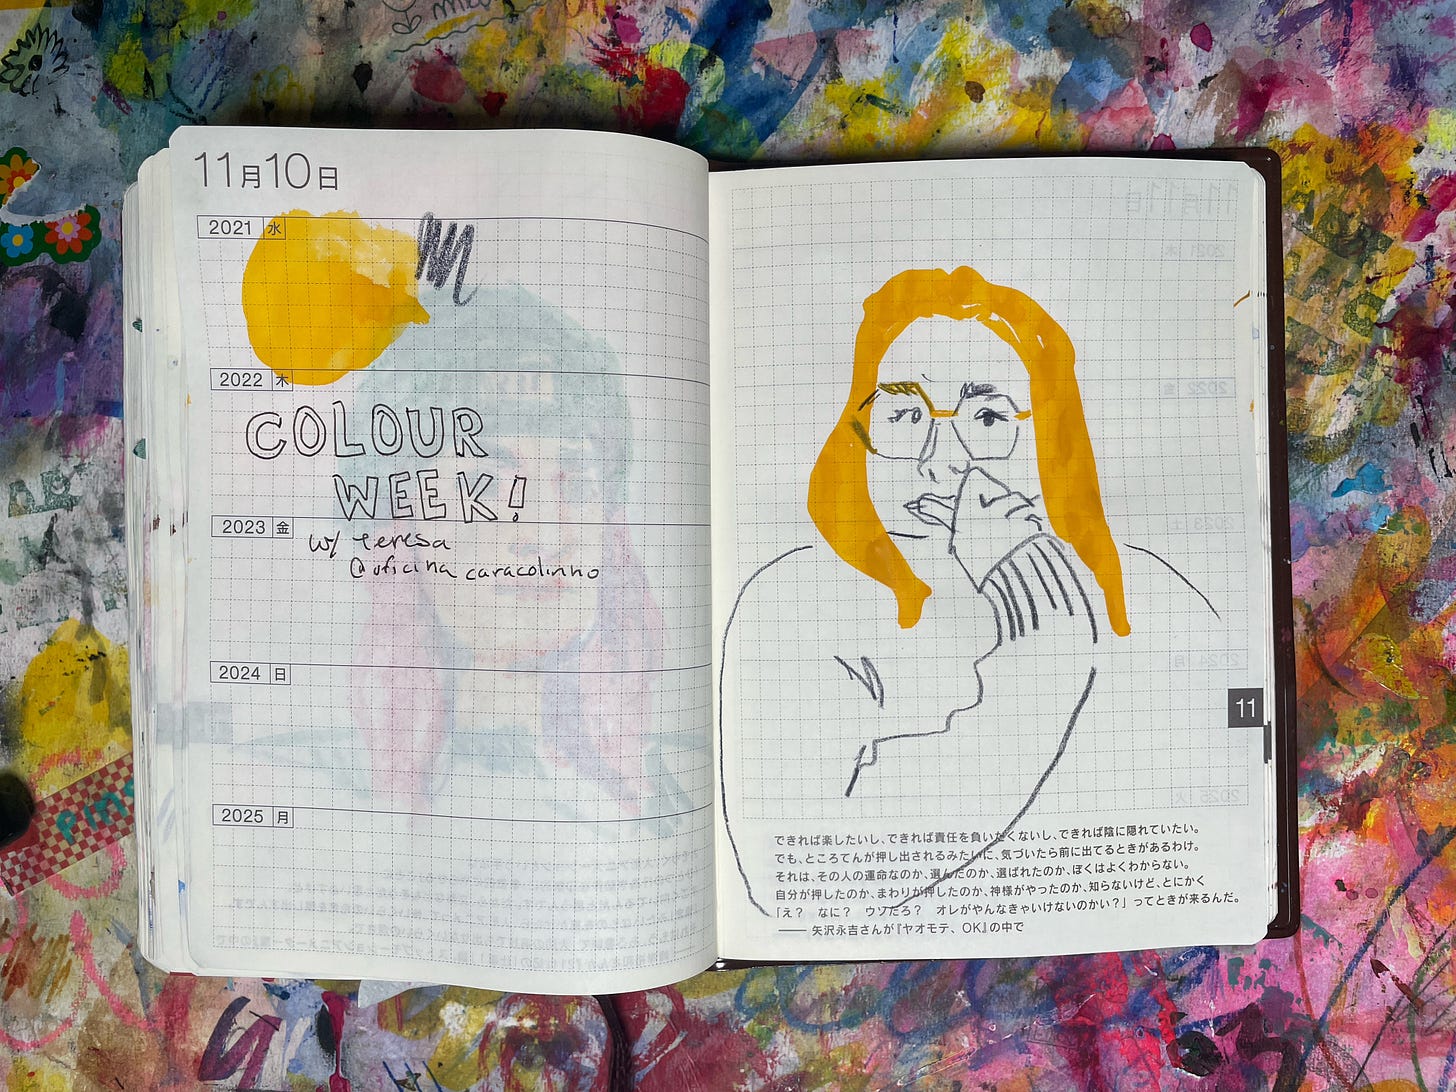 11月10日
2021 水
2022 木
COLOUR
WEEK!
2023 金
w/ teresa
@oficina caracolinho
2024 日
2025 月
11
できれば楽したいし、できれば責任を負いたくないし、できれば陰に隠れていたい。
でも、ところてんが押し出されるみたいに、気づいたら前に出てるときがあるわけ。
それは、その人の運命なのか、選んだのか、選ばれたのか、ぼくはよくわからない。
自分が押したのか、まわりが押したのか、神様がやったのか、知らないけど、とにかく
「え?　なに?　ウソだろ?　オレがやんなきゃいけないのかい?」ってときが来るんだ。
—— 矢沢永吉さんが『ヤオモテ、OK』の中で